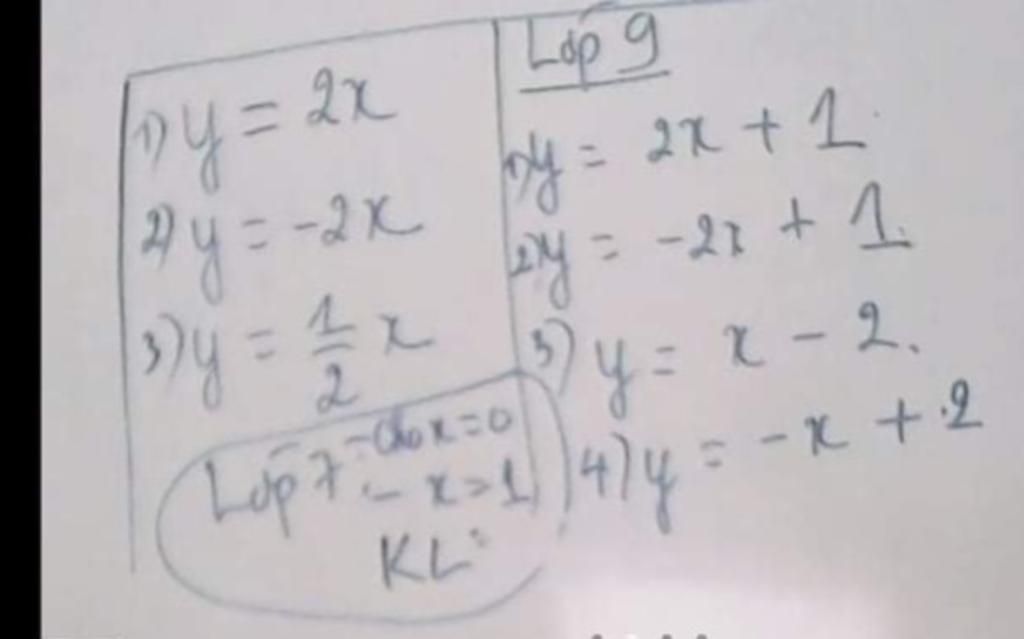 1) y = 2x
2) y = -2x
3) y = 1/2 x
Lớp 7 - Cho x = 0
- x = 1
KL:
Lớp 9
1) y = 2x + 1
2) y = -2x + 1
3) y = x - 2.
4) y = -x + 2